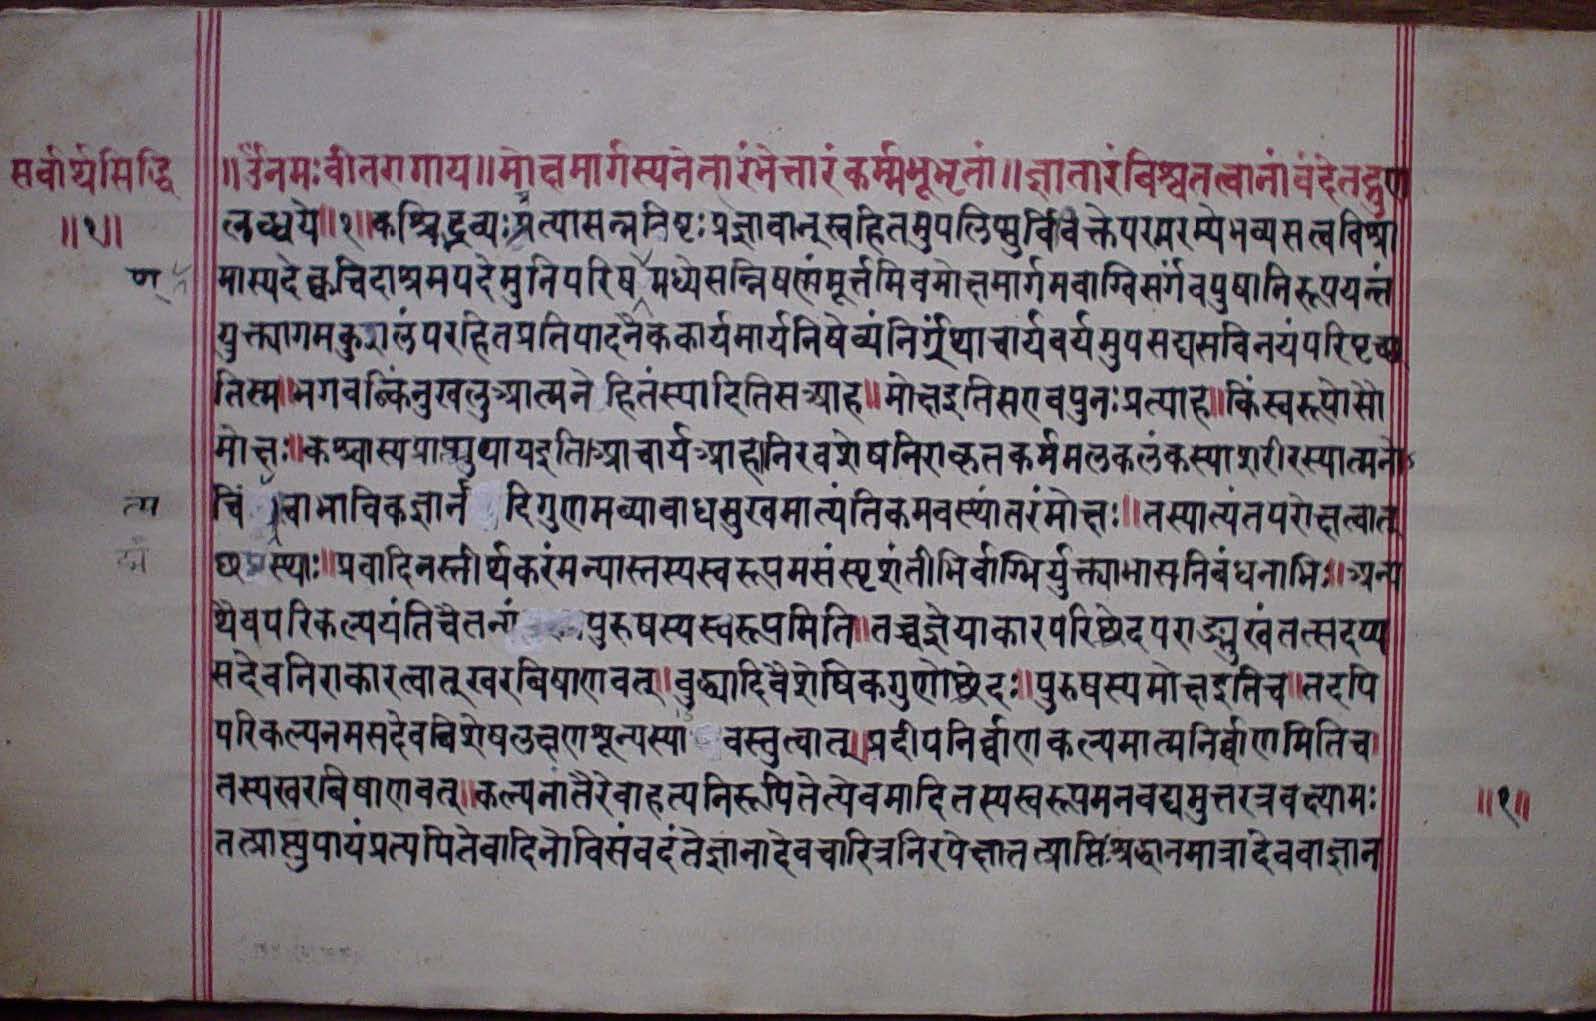 सर्वार्थसिद्धि
॥१॥
॥ॐनमःवीतरागाय॥मोक्षमार्गस्यनेतारंभेत्तारंकर्म्मभूभृतां॥ज्ञातारंविश्वतत्वानांवंदेतद्गुण
लब्धये॥१॥कश्चिद्भव्यःप्रत्यासन्ननिष्टःप्रज्ञावान्स्वहितमुपलिप्सुर्विविक्तेपरमरम्येभव्यसत्वविश्रा
मास्पदेक्वचिदाश्रमपदेमुनिपरिषमध्येसन्निषण्णंमूर्त्तमिवमोक्षमार्गमवाग्विसर्गंवपुषानिरूपयन्तं
युक्त्यागमकुशलंपरहितप्रतिपादनैककार्यमार्यनिषेव्यंनिर्ग्रंथाचार्यवर्यमुपसद्यसविनयंपरिपृच्छ
तिस्म॥भगवन्किंनुखलुआत्मनेहितंस्यादितिसआह॥मोक्षइतिसएवपुनःप्रत्याह॥किंस्वरूपोसौ
मोक्षः॥कश्चास्यप्राप्त्युपायइति।आचार्यआह।निरवशेषनिराकृतकर्ममलकलंकस्याशरीरस्यात्मनो
चिं स्वाभाविकज्ञानं दिगुणमव्याबाधसुखमात्यंतिकमवस्थांतरंमोक्षः॥तस्यात्यंतपरोक्षत्वात्
छद्मस्थाः॥प्रवादिनस्तीर्थकरंमन्यास्तस्यस्वरूपमसंस्पृशंतीभिर्वाग्भिर्युक्त्याभासनिबंधनाभिः॥अन्य
थैवपरिकल्पयंतिचैतन्यं पुरुषस्यस्वरूपमिति॥तच्चज्ञेयाकारपरिछेदपराङ्मुखंतत्सदप्य
सदेवनिराकारत्वात्खरविषाणवत्॥बुद्ध्यादिवैशेषिकगुणोछेदः॥पुरुषस्यमोक्षइतिच॥तदपि
परिकल्पनमसदेवविशेषलक्षणशून्यस्या वस्तुत्वात्॥प्रदीपनिर्व्वाणकल्पमात्मनिर्व्वाणमितिच
तस्यखरविषाणवत्॥कल्पनातैरेवाहत्यनिरूपितेत्येवमादितस्यस्वरूपमनवद्यमुत्तरत्रवक्ष्यामः
॥१॥
तत्प्राप्त्युपायंप्रत्यपितेवादिनोविसंवदंतेज्ञानादेवचारित्रनिरपेक्षात्तत्प्राप्तिःश्रद्धानमात्रादेववाज्ञान